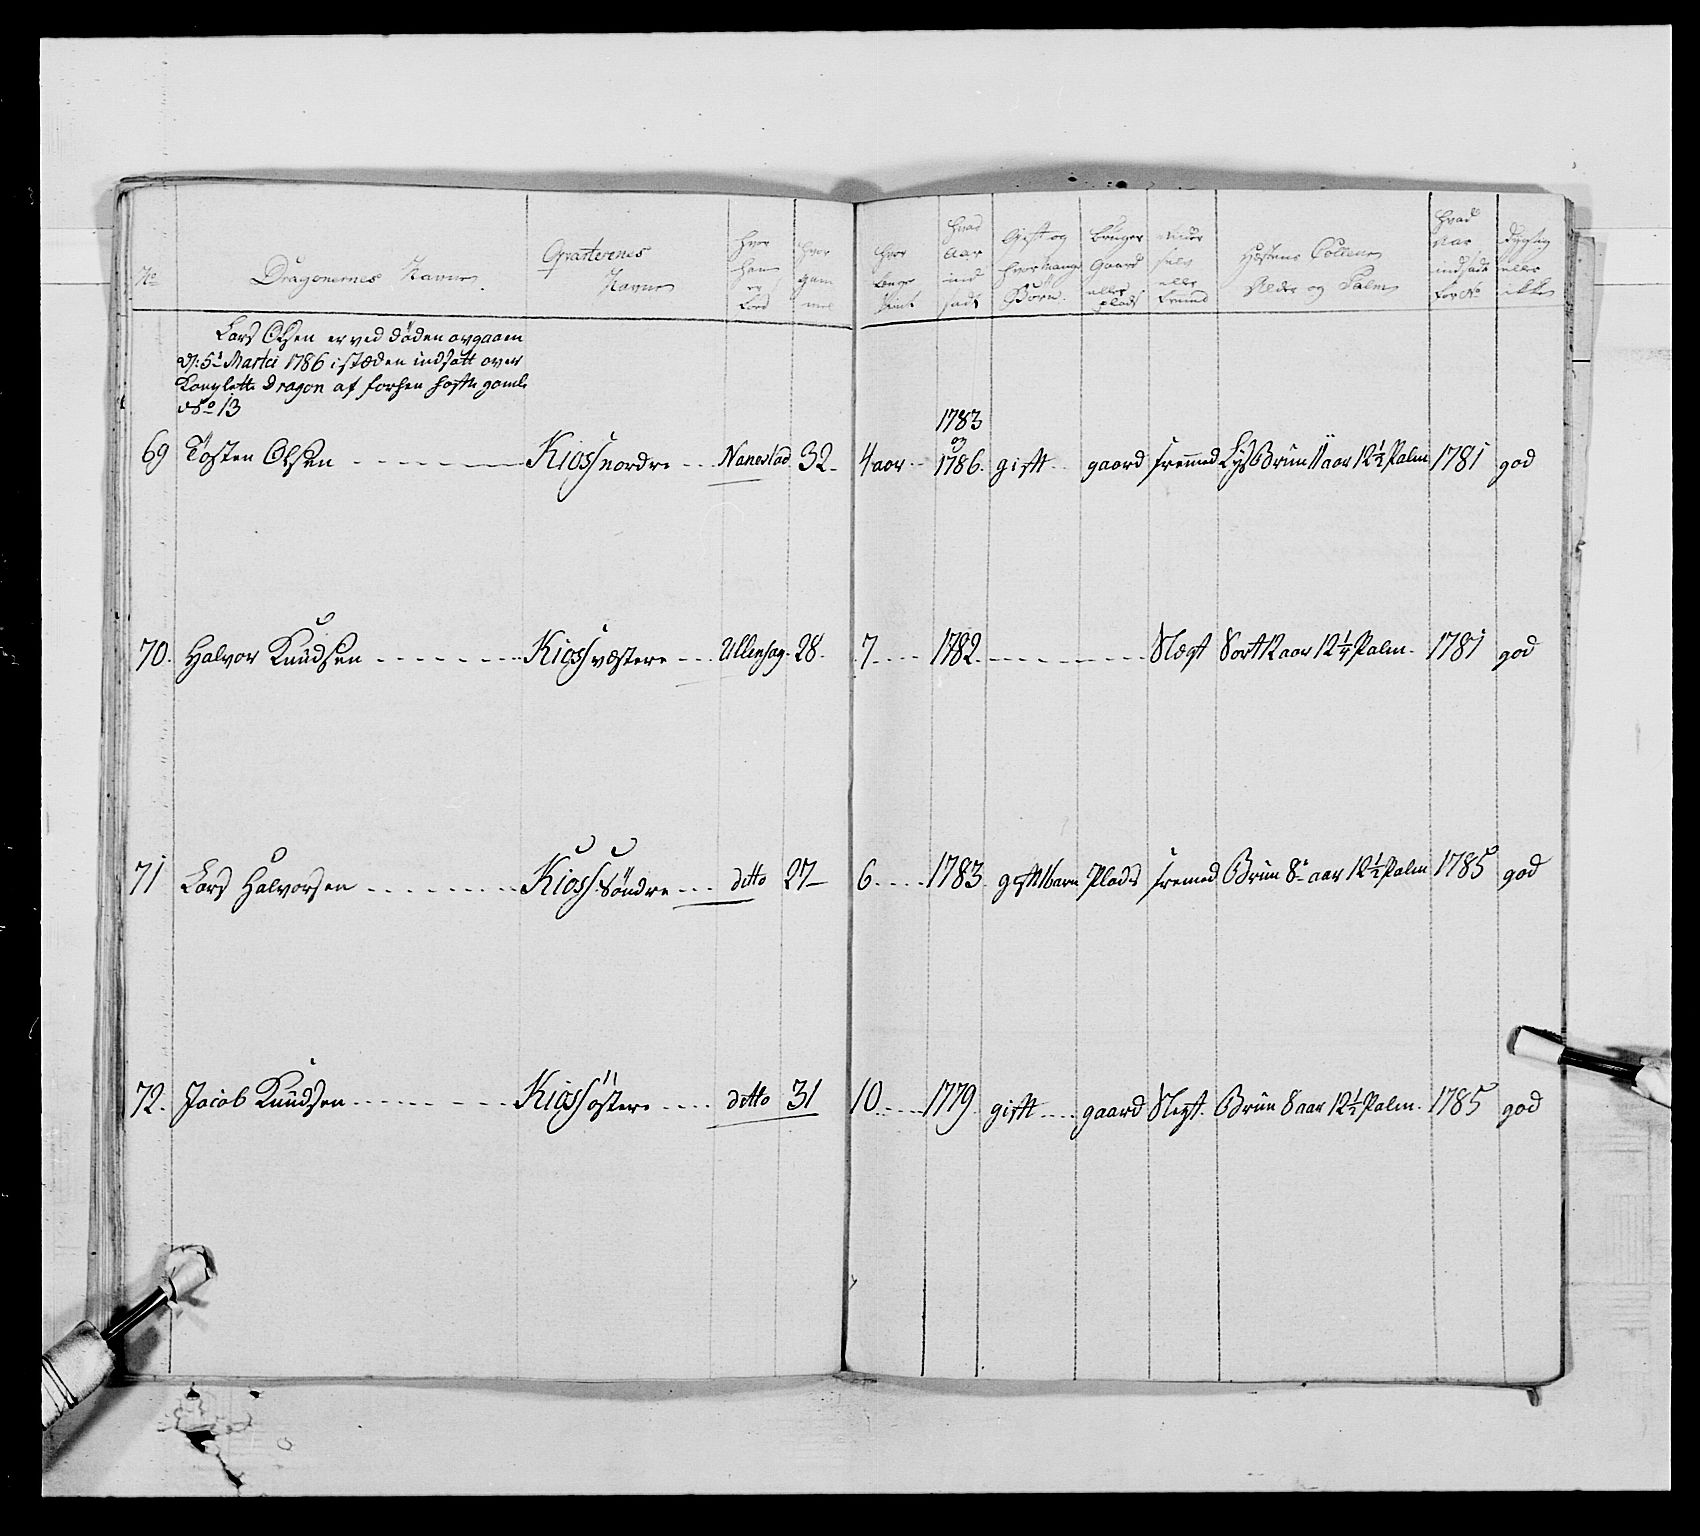 No Dragonernes Navne Qvarterenes Navne Hvor Han er Lord Hvor gam mel Hvor længe tient Hvad Aar ind sadt Gift og hvor mange Börn. bruger Gaard eller plads eller Hæstens Coleur Alder og Palm Hvad Aar indsadt for No dygtig eller ikke
Lars Olsen er ved döden avgaaen
d: 5t Martci 1786 i stæden indsatt over
Dragon af forhen hafte gamle
No 13
69 Tosten Olsen Kioss nordre Nanestad 32 4 aar 1783 og 1786 gift gaard fremed Lys Brun 11 aar 12 1/2 Palm 1781 god
70. Halvor Knudsen Kioss væstere Ullensag. 28. 7 1782 Slægt Sort 12 aar 12 1/4 Palm. 1781 god
71 Lars Halvorsen Kioss Söndre ditto 27 6 1783 gift 1 barn Plads fremed Brun 8 aar 12 1/2 Palm 1785 god
72. Jacob Knudsen Kioss östere ditto 31 10 1779 gift gaard Slegt Brun 8 aar 12 1/2 Palm. 1785 god